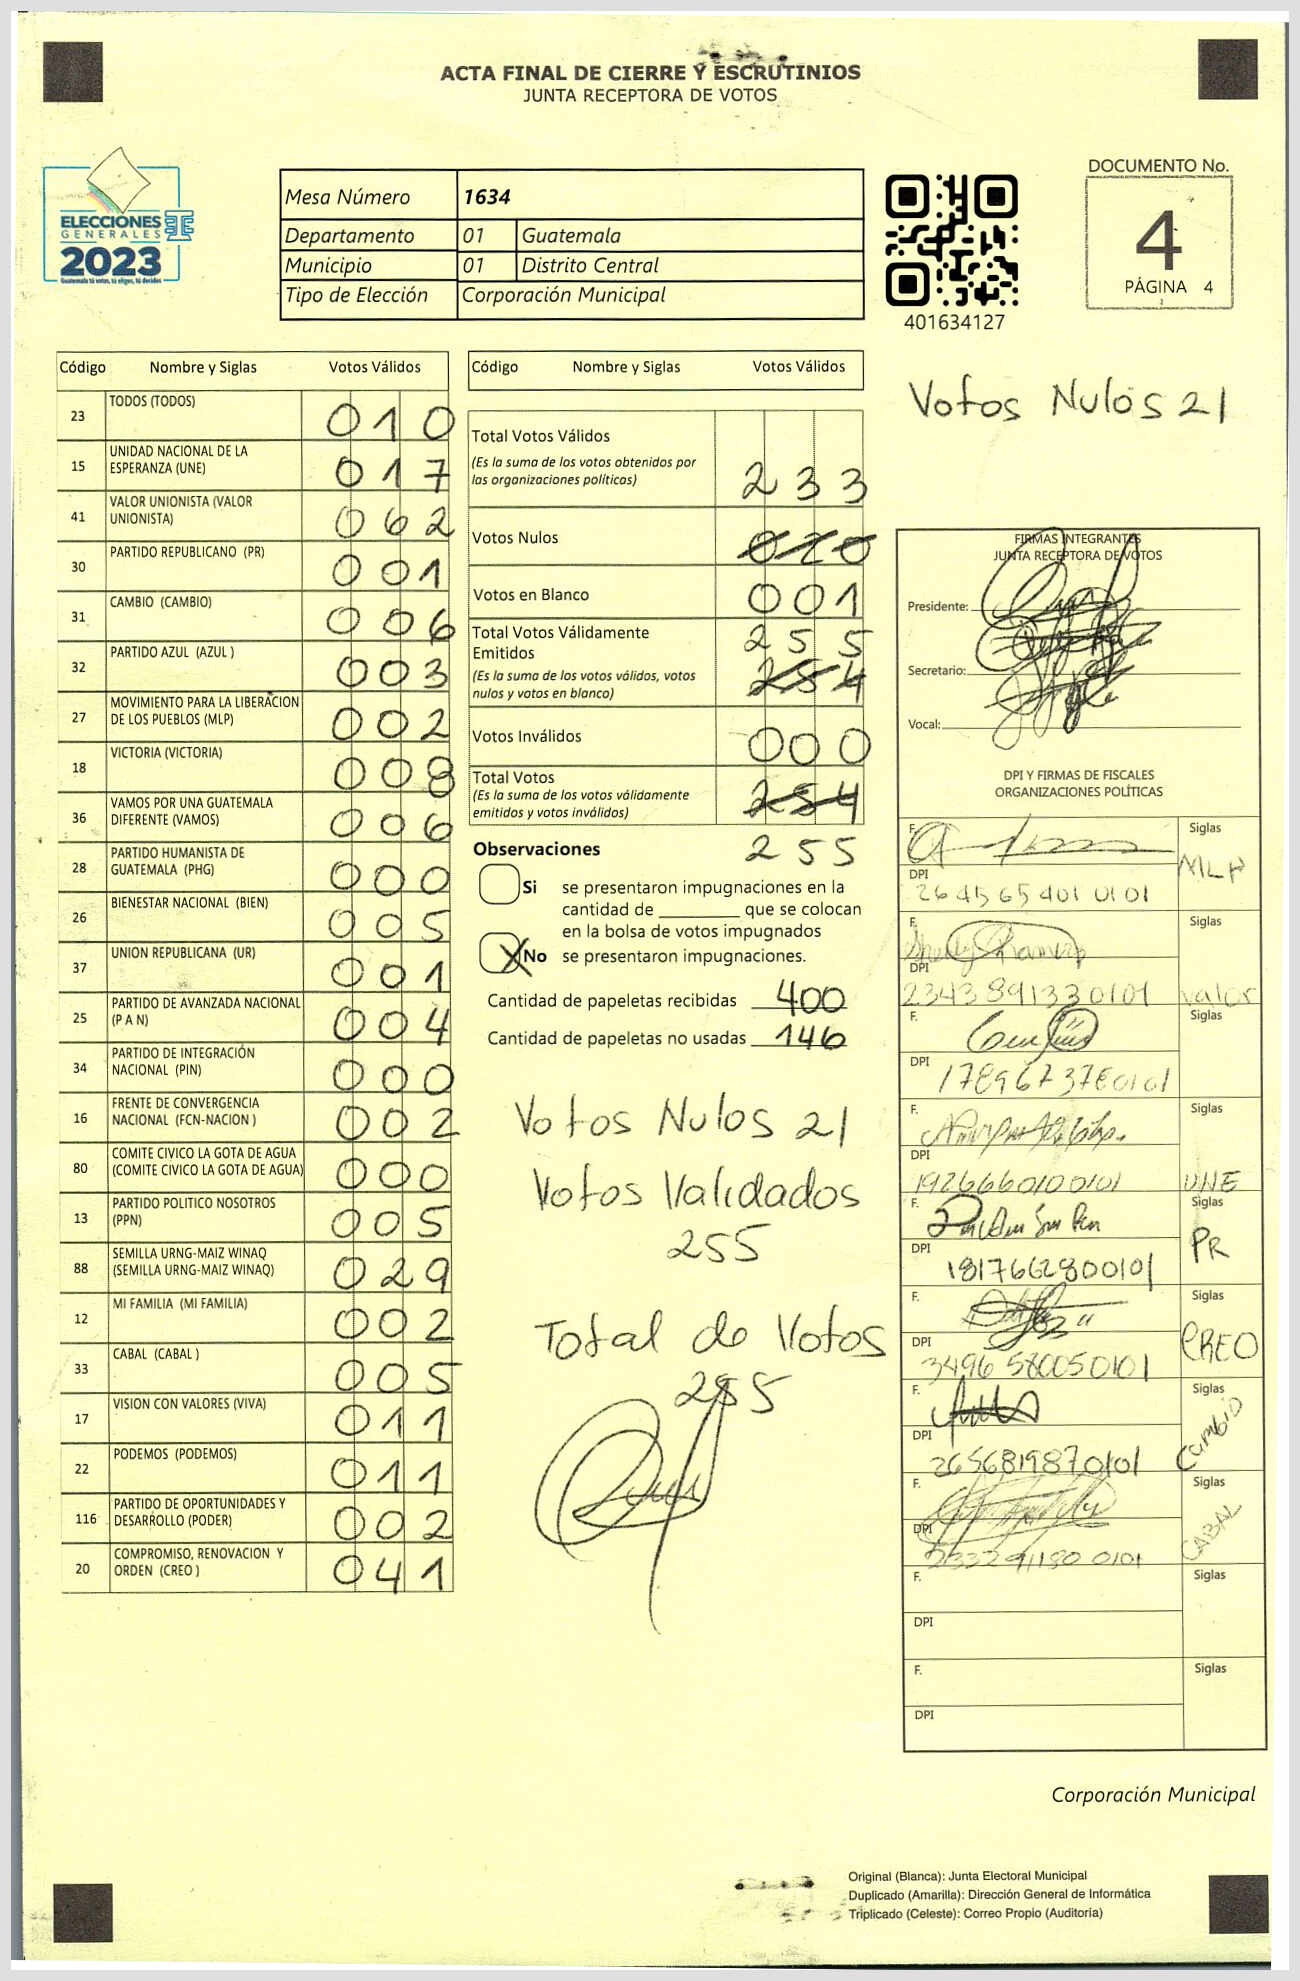 ACTA FINAL DE CIERRE Y ESCRUTINIOS
JUNTA RECEPTORA DE VOTOS
ELECCIONES
GENERALES
2023
Guatemala tú votas, tú eliges, tú decides
Mesa Número 1634
Departamento 01 Guatemala
Municipio 01 Distrito Central
Tipo de Elección Corporación Municipal
401634127
DOCUMENTO No.
4
PÁGINA 4
Código Nombre y Siglas Votos Válidos
23 TODOS (TODOS) 010
15 UNIDAD NACIONAL DE LA ESPERANZA (UNE) 017
41 VALOR UNIONISTA (VALOR UNIONISTA) 062
30 PARTIDO REPUBLICANO (PR) 001
31 CAMBIO (CAMBIO) 006
32 PARTIDO AZUL (AZUL ) 003
27 MOVIMIENTO PARA LA LIBERACION DE LOS PUEBLOS (MLP) 002
18 VICTORIA (VICTORIA) 008
36 VAMOS POR UNA GUATEMALA DIFERENTE (VAMOS) 006
28 PARTIDO HUMANISTA DE GUATEMALA (PHG) 000
26 BIENESTAR NACIONAL (BIEN) 005
37 UNION REPUBLICANA (UR) 001
25 PARTIDO DE AVANZADA NACIONAL (P A N) 004
34 PARTIDO DE INTEGRACIÓN NACIONAL (PIN) 000
16 FRENTE DE CONVERGENCIA NACIONAL (FCN-NACION ) 002
80 COMITE CIVICO LA GOTA DE AGUA (COMITE CIVICO LA GOTA DE AGUA) 000
13 PARTIDO POLITICO NOSOTROS (PPN) 005
88 SEMILLA URNG-MAIZ WINAQ (SEMILLA URNG-MAIZ WINAQ) 029
12 MI FAMILIA (MI FAMILIA) 002
33 CABAL (CABAL ) 005
17 VISION CON VALORES (VIVA) 011
22 PODEMOS (PODEMOS) 011
116 PARTIDO DE OPORTUNIDADES Y DESARROLLO (PODER) 002
20 COMPROMISO, RENOVACION Y ORDEN (CREO ) 041
Código Nombre y Siglas Votos Válidos
Total Votos Válidos
(Es la suma de los votos obtenidos por
las organizaciones políticas) 233
Votos Nulos 020
Votos en Blanco 001
Total Votos Válidamente 255
Emitidos
(Es la suma de los votos válidos, votos 254
nulos y votos en blanco)
Votos Inválidos 000
Total Votos
(Es la suma de los votos válidamente 254
emitidos y votos inválidos)
255
Observaciones
Si se presentaron impugnaciones en la
cantidad de ________ que se colocan
en la bolsa de votos impugnados
X No se presentaron impugnaciones.
Cantidad de papeletas recibidas 400
Cantidad de papeletas no usadas 146
Votos Nulos 21
Votos Validados
255
Total de Votos
255
Votos Nulos 21
FIRMAS INTEGRANTES
JUNTA RECEPTORA DE VOTOS
Presidente:
Secretario:
Vocal:
DPI Y FIRMAS DE FISCALES
ORGANIZACIONES POLÍTICAS
F. Siglas
DPI 2645654010101
F. Siglas
DPI 2343891330101 Valor
F. Siglas
DPI 1789673780101
F. Siglas
DPI 1926660100101 UNE
F. Siglas
PR
DPI 1817662800101
F. Siglas
CREO
DPI 3496580050101
F. Siglas
Cambio
DPI 2656819870101
F. Siglas
CABAL
DPI 2332911800101
F. Siglas
DPI
F. Siglas
DPI
Corporación Municipal
Original (Blanca): Junta Electoral Municipal
Duplicado (Amarilla): Dirección General de Informática
Triplicado (Celeste): Correo Propio (Auditoría)